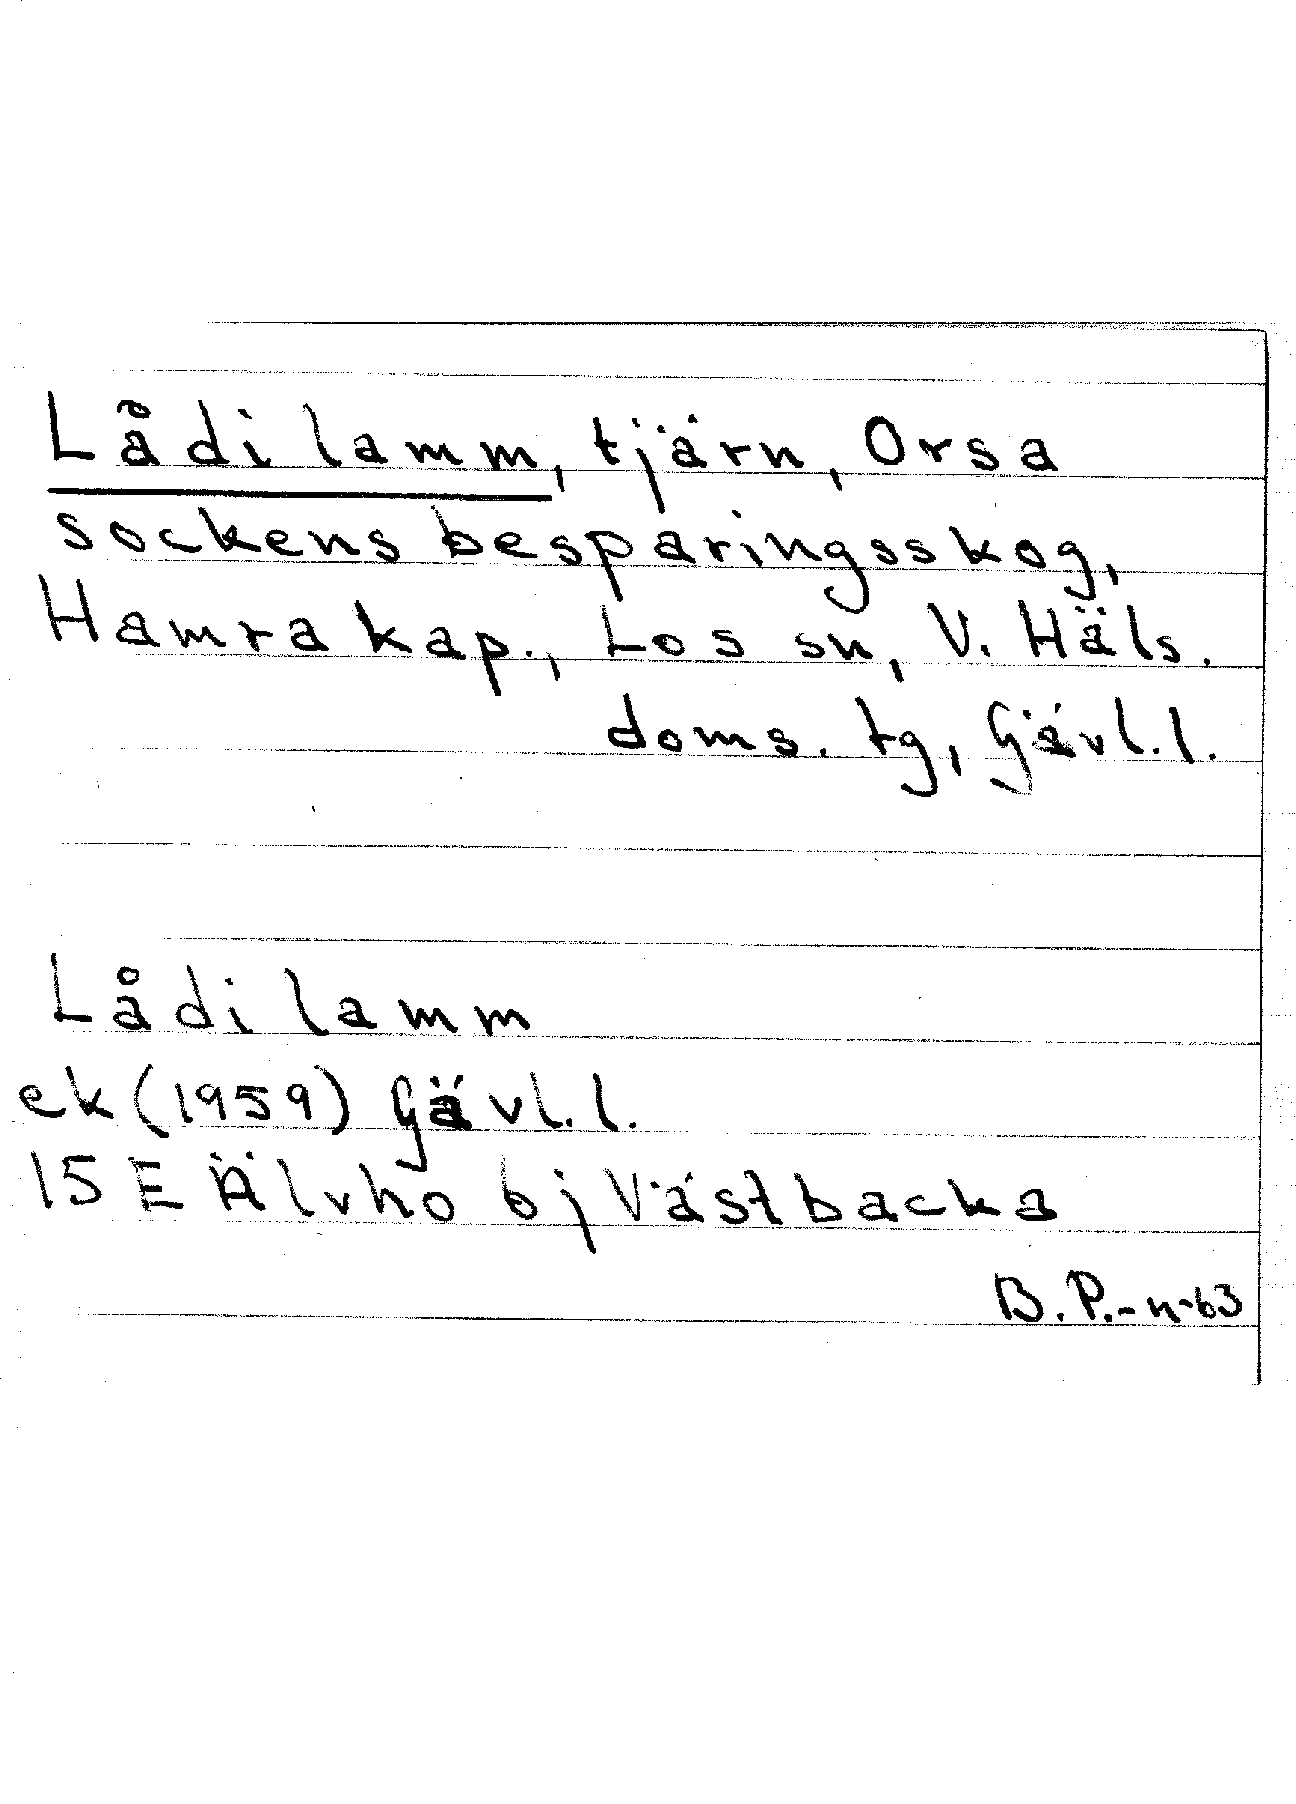 Lådilamm, tjärn, Orsa
sockens besparingsskog,
Hamra kap., Los sn, V. Häls.
doms. tg, Gävl.l.
Lådilamm
ek (1959) Gävl.l.
15 E Älvho bj Västbacka
B.P.-n-63